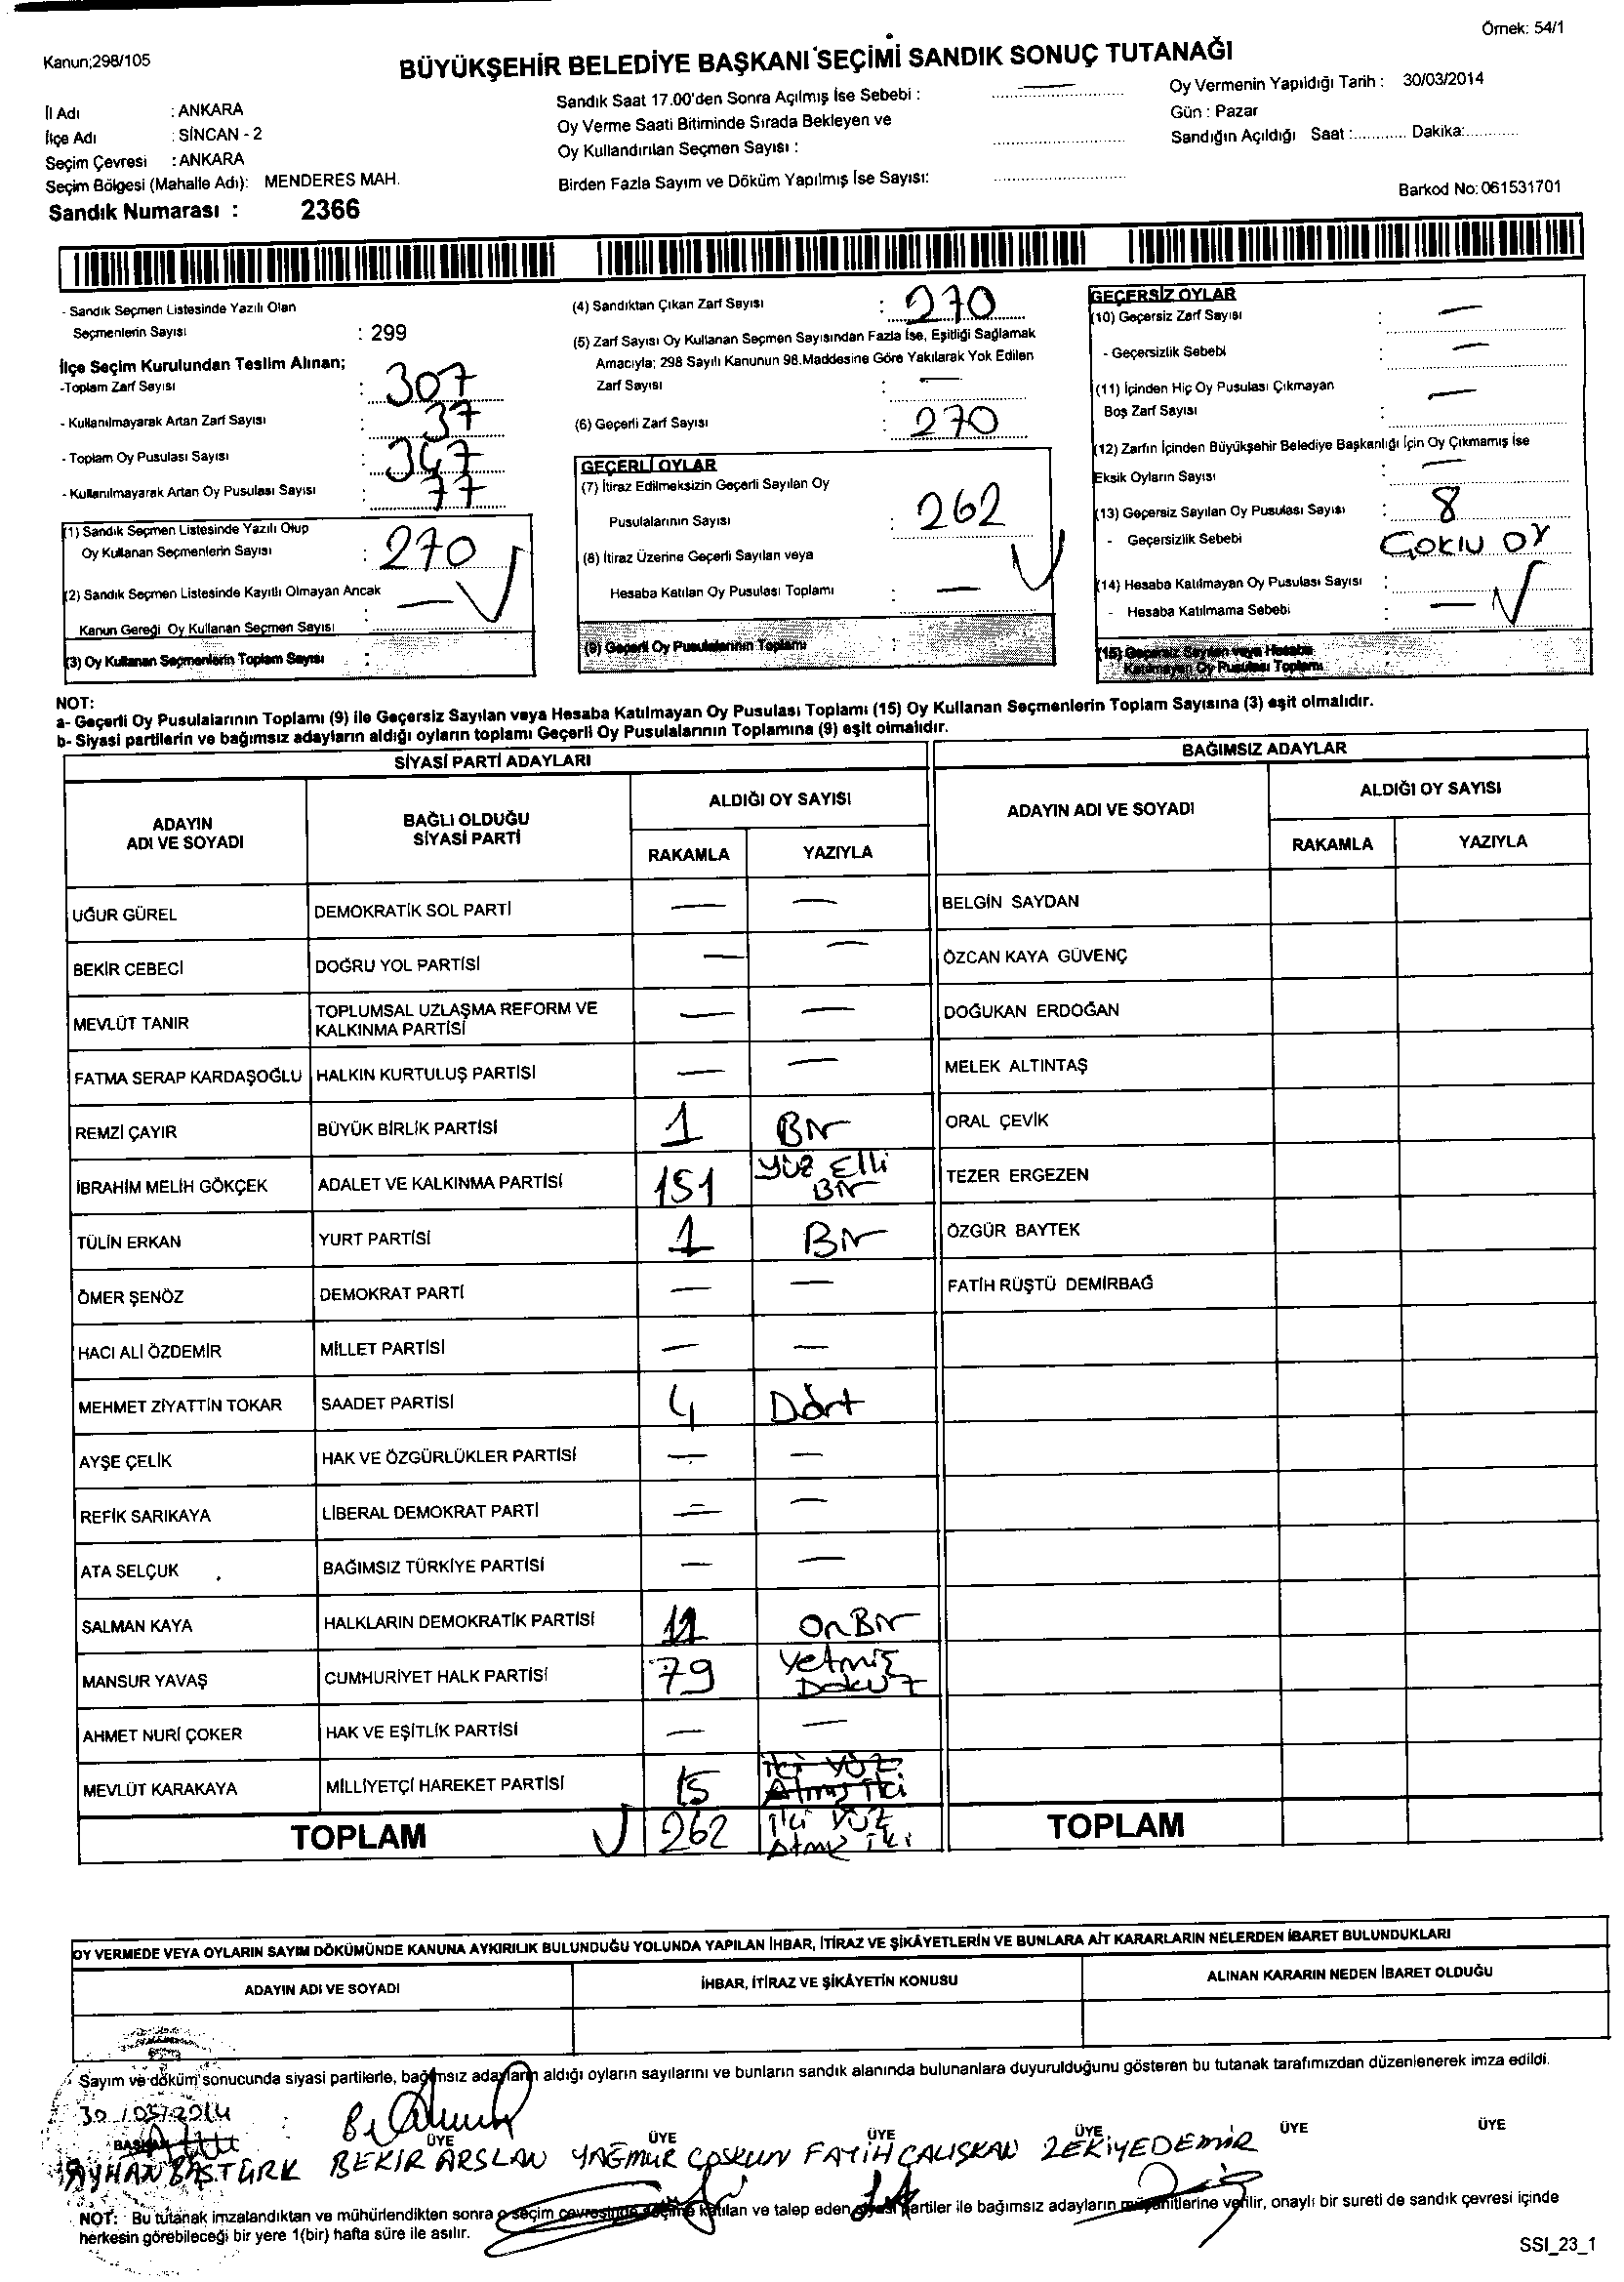 Örnek: 54/1
Kanun;298/105
BÜYÜKŞEHİR BELEDİYE BAŞKANI SEÇİMİ SANDIK SONUÇ TUTANAĞI
İl Adı : ANKARA
İlçe Adı : SİNCAN - 2
Seçim Çevresi : ANKARA
Seçim Bölgesi (Mahalle Adı): MENDERES MAH.
Sandık Numarası : 2366
Sandık Saat 17.00'den Sonra Açılmış İse Sebebi : —
Oy Verme Saati Bitiminde Sırada Bekleyen ve
Oy Kullandırılan Seçmen Sayısı :
Birden Fazla Sayım ve Döküm Yapılmış İse Sayısı:
Oy Vermenin Yapıldığı Tarih : 30/03/2014
Gün : Pazar
Sandığın Açıldığı Saat :............ Dakika:............
Barkod No: 061531701
- Sandık Seçmen Listesinde Yazılı Olan
Seçmenlerin Sayısı : 299
İlçe Seçim Kurulundan Teslim Alınan;
-Toplam Zarf Sayısı : 307
- Kullanılmayarak Artan Zarf Sayısı : 37
- Toplam Oy Pusulası Sayısı : 347
- Kullanılmayarak Artan Oy Pusulası Sayısı : 77
(1) Sandık Seçmen Listesinde Yazılı Olup
Oy Kullanan Seçmenlerin Sayısı : 270
(2) Sandık Seçmen Listesinde Kayıtlı Olmayan Ancak
Kanun Gereği Oy Kullanan Seçmen Sayısı —
(3) Oy Kullanan Seçmenlerin Toplam Sayısı :
(4) Sandıktan Çıkan Zarf Sayısı : 270
(5) Zarf Sayısı Oy Kullanan Seçmen Sayısından Fazla İse, Eşitliği Sağlamak
Amacıyla; 298 Sayılı Kanunun 98.Maddesine Göre Yakılarak Yok Edilen
Zarf Sayısı : —
(6) Geçerli Zarf Sayısı : 270
GEÇERLİ OYLAR
(7) İtiraz Edilmeksizin Geçerli Sayılan Oy
Pusulalarının Sayısı : 262
(8) İtiraz Üzerine Geçerli Sayılan veya
Hesaba Katılan Oy Pusulası Toplamı : —
(9) Geçerli Oy Pusulalarının Toplamı :
GEÇERSİZ OYLAR
(10) Geçersiz Zarf Sayısı : —
- Geçersizlik Sebebi : —
(11) İçinden Hiç Oy Pusulası Çıkmayan
Boş Zarf Sayısı : —
(12) Zarfın İçinden Büyükşehir Belediye Başkanlığı İçin Oy Çıkmamış İse
Eksik Oyların Sayısı : —
(13) Geçersiz Sayılan Oy Pusulası Sayısı : 8
- Geçersizlik Sebebi : ÇOKLU OY
(14) Hesaba Katılmayan Oy Pusulası Sayısı :
- Hesaba Katılmama Sebebi : —
(15) Geçersiz Sayılan veya Hesaba
Katılmayan Oy Pusulası Toplamı :
NOT:
a- Geçerli Oy Pusulalarının Toplamı (9) ile Geçersiz Sayılan veya Hesaba Katılmayan Oy Pusulası Toplamı (15) Oy Kullanan Seçmenlerin Toplam Sayısına (3) eşit olmalıdır.
b- Siyasi partilerin ve bağımsız adayların aldığı oyların toplamı Geçerli Oy Pusulalarının Toplamına (9) eşit olmalıdır.
SİYASİ PARTİ ADAYLARI
ADAYIN ADI VE SOYADI BAĞLI OLDUĞU SİYASİ PARTİ ALDIĞI OY SAYISI
RAKAMLA YAZIYLA
UĞUR GÜREL DEMOKRATİK SOL PARTİ — —
BEKİR CEBECİ DOĞRU YOL PARTİSİ — —
MEVLÜT TANIR TOPLUMSAL UZLAŞMA REFORM VE KALKINMA PARTİSİ — —
FATMA SERAP KARDAŞOĞLU HALKIN KURTULUŞ PARTİSİ — —
REMZİ ÇAYIR BÜYÜK BİRLİK PARTİSİ 1 Bir
İBRAHİM MELİH GÖKÇEK ADALET VE KALKINMA PARTİSİ 151 Yüz Elli Bir
TÜLİN ERKAN YURT PARTİSİ 1 Bir
ÖMER ŞENÖZ DEMOKRAT PARTİ — —
HACI ALİ ÖZDEMİR MİLLET PARTİSİ — —
MEHMET ZİYATTİN TOKAR SAADET PARTİSİ 4 Dört
AYŞE ÇELİK HAK VE ÖZGÜRLÜKLER PARTİSİ — —
REFİK SARIKAYA LİBERAL DEMOKRAT PARTİ — —
ATA SELÇUK BAĞIMSIZ TÜRKİYE PARTİSİ — —
SALMAN KAYA HALKLARIN DEMOKRATİK PARTİSİ 11 On Bir
MANSUR YAVAŞ CUMHURİYET HALK PARTİSİ 79 Yetmiş Dokuz
AHMET NURİ ÇOKER HAK VE EŞİTLİK PARTİSİ — —
MEVLÜT KARAKAYA MİLLİYETÇİ HAREKET PARTİSİ 15 İki Yüz Atmış İki
TOPLAM 262 İki Yüz Atmış İki
BAĞIMSIZ ADAYLAR
ADAYIN ADI VE SOYADI ALDIĞI OY SAYISI
RAKAMLA YAZIYLA
BELGİN SAYDAN
ÖZCAN KAYA GÜVENÇ
DOĞUKAN ERDOĞAN
MELEK ALTINTAŞ
ORAL ÇEVİK
TEZER ERGEZEN
ÖZGÜR BAYTEK
FATİH RÜŞTÜ DEMİRBAĞ
TOPLAM
OY VERMEDE VEYA OYLARIN SAYIM DÖKÜMÜNDE KANUNA AYKIRILIK BULUNDUĞU YOLUNDA YAPILAN İHBAR, İTİRAZ VE ŞİKÂYETLERİN VE BUNLARA AİT KARARLARIN NELERDEN İBARET BULUNDUKLARI
ADAYIN ADI VE SOYADI İHBAR, İTİRAZ VE ŞİKÂYETİN KONUSU ALINAN KARARIN NEDEN İBARET OLDUĞU
Sayım ve döküm sonucunda siyasi partilerle, bağımsız adayların aldığı oyların sayılarını ve bunların sandık alanında bulunanlara duyurulduğunu gösteren bu tutanak tarafımızdan düzenlenerek imza edildi.
30/03/2014
BAŞKAN ÜYE ÜYE ÜYE ÜYE ÜYE ÜYE
AYHAN BAŞTÜRK BEKİR ARSLAN YAĞMUR COŞKUN FATİH ÇALIŞKAN ZEKİYE DEMİR
NOT: Bu tutanak imzalandıktan ve mühürlendikten sonra o seçim çevresinde seçime katılan ve talep eden siyasi partiler ile bağımsız adayların müşahitlerine verilir, onaylı bir sureti de sandık çevresi içinde
herkesin görebileceği bir yere 1(bir) hafta süre ile asılır.
SSI_23_1